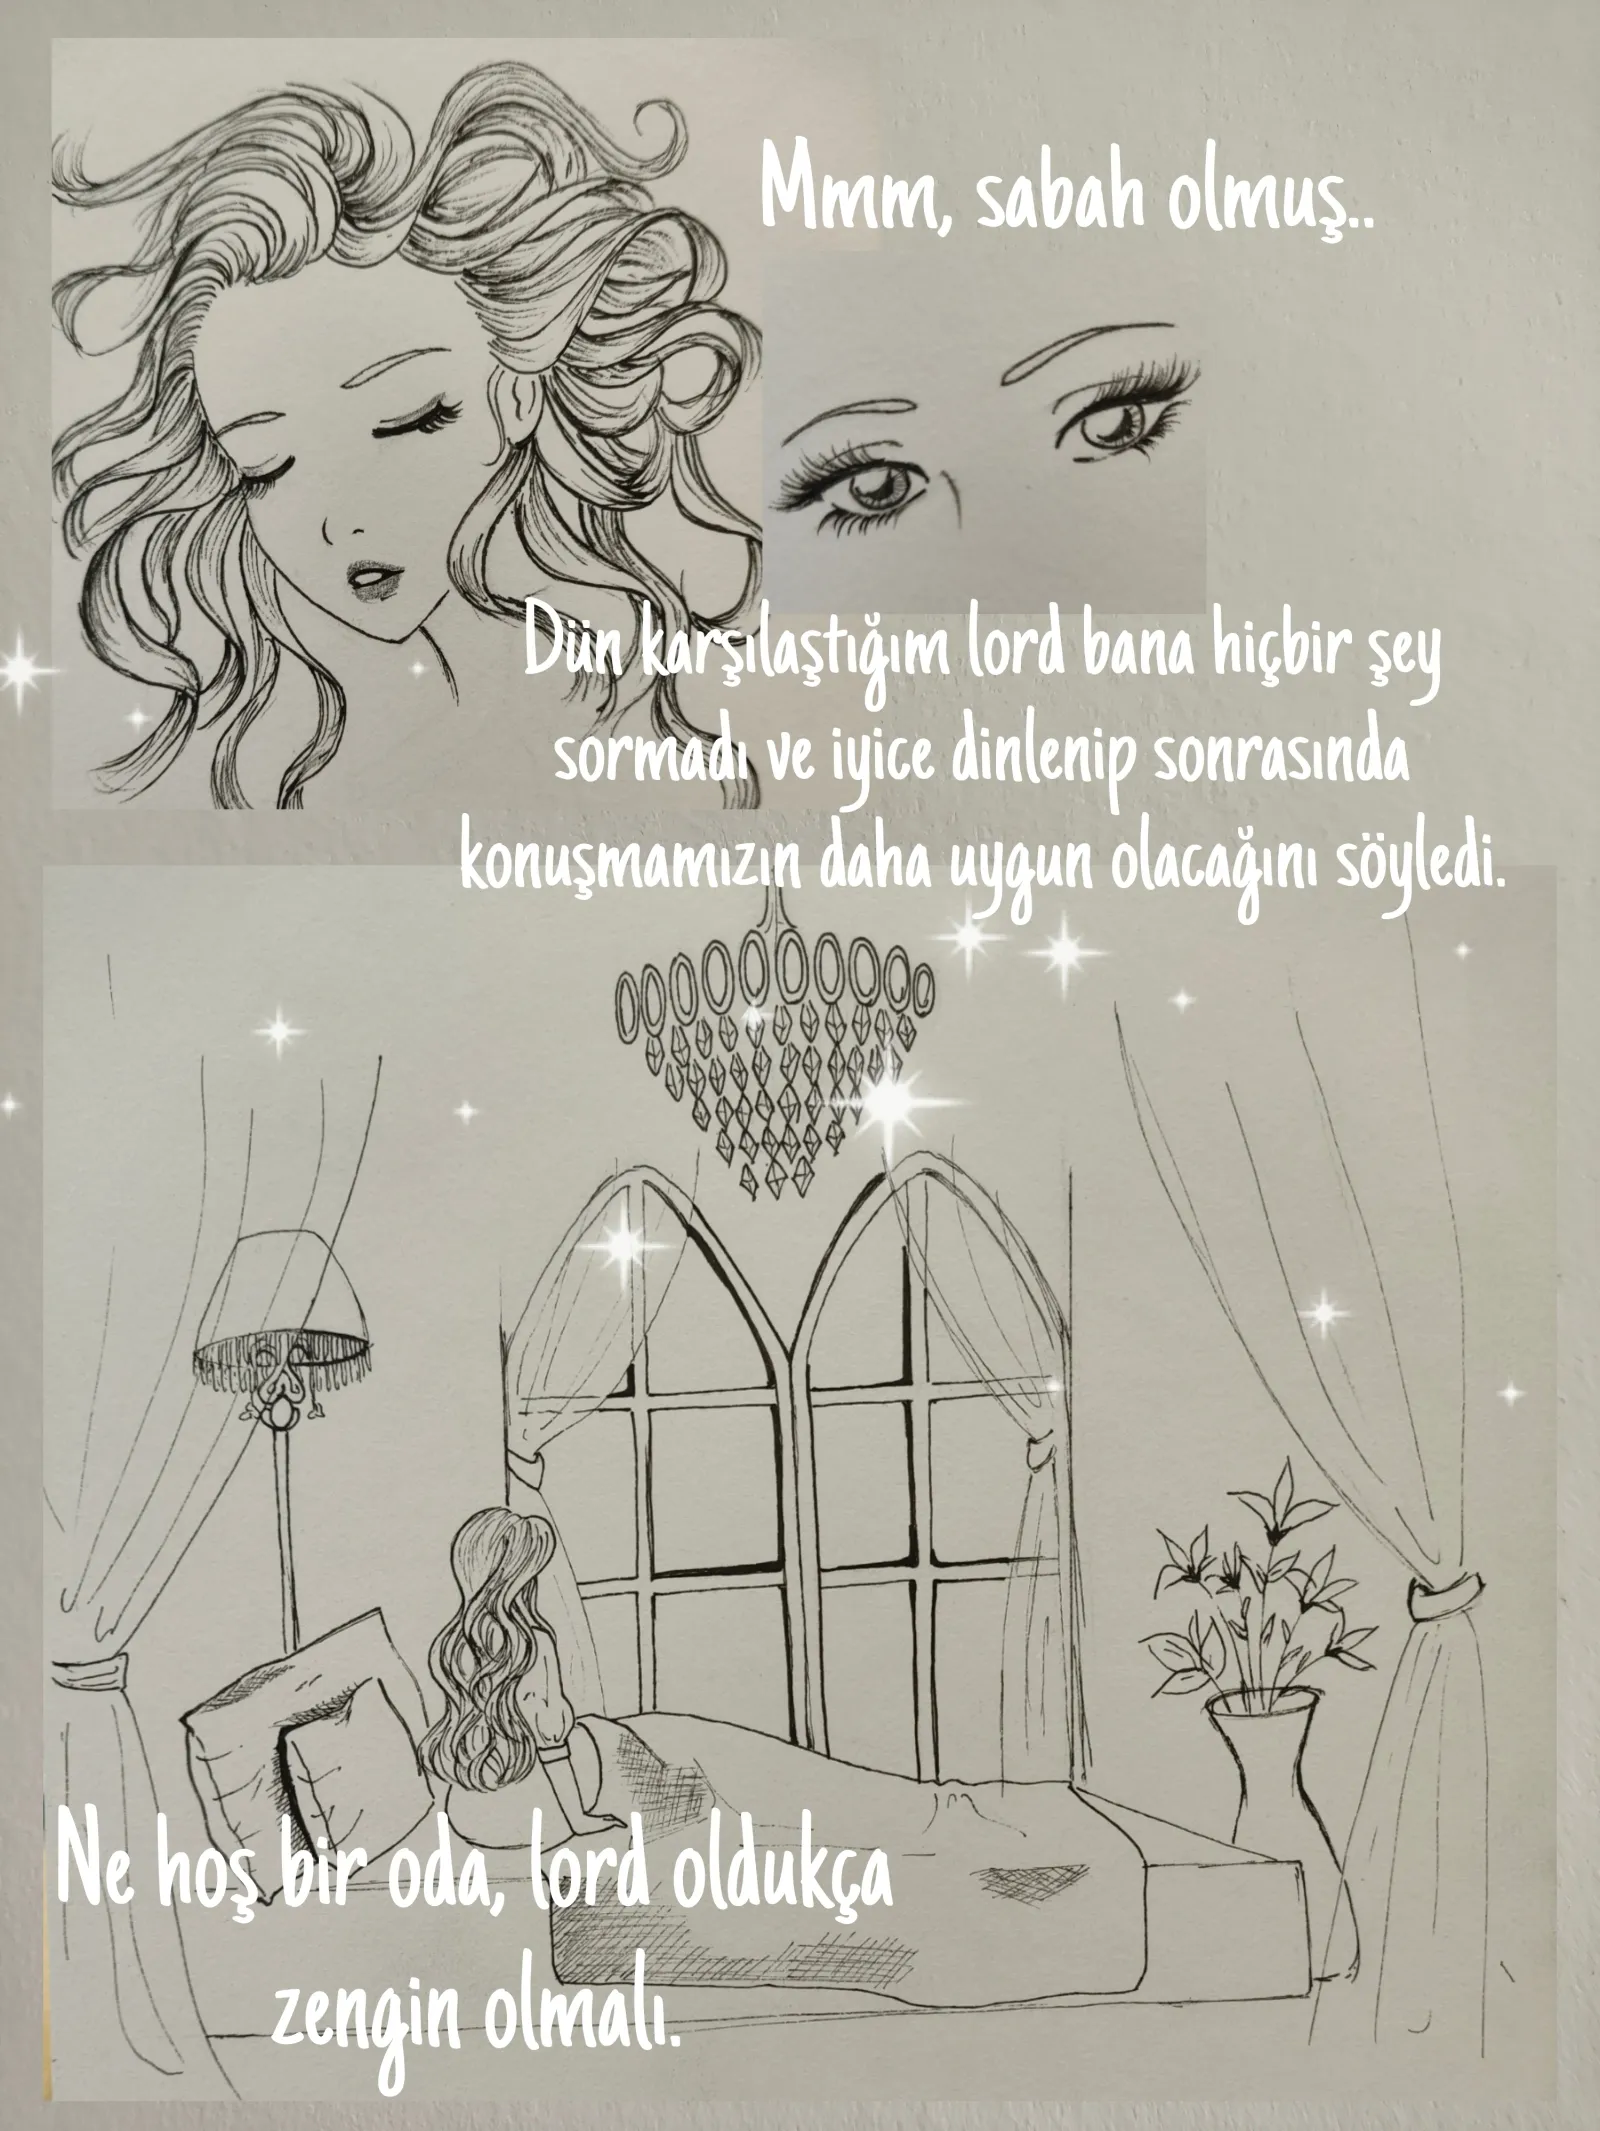 Mmm, sabah olmuş..
Dün karşılaştığım lord bana hiçbir şey
sormadı ve iyice dinlenip sonrasında
konuşmamızın daha uygun olacağını söyledi.
Ne hoş bir oda, lord oldukça
zengin olmalı.